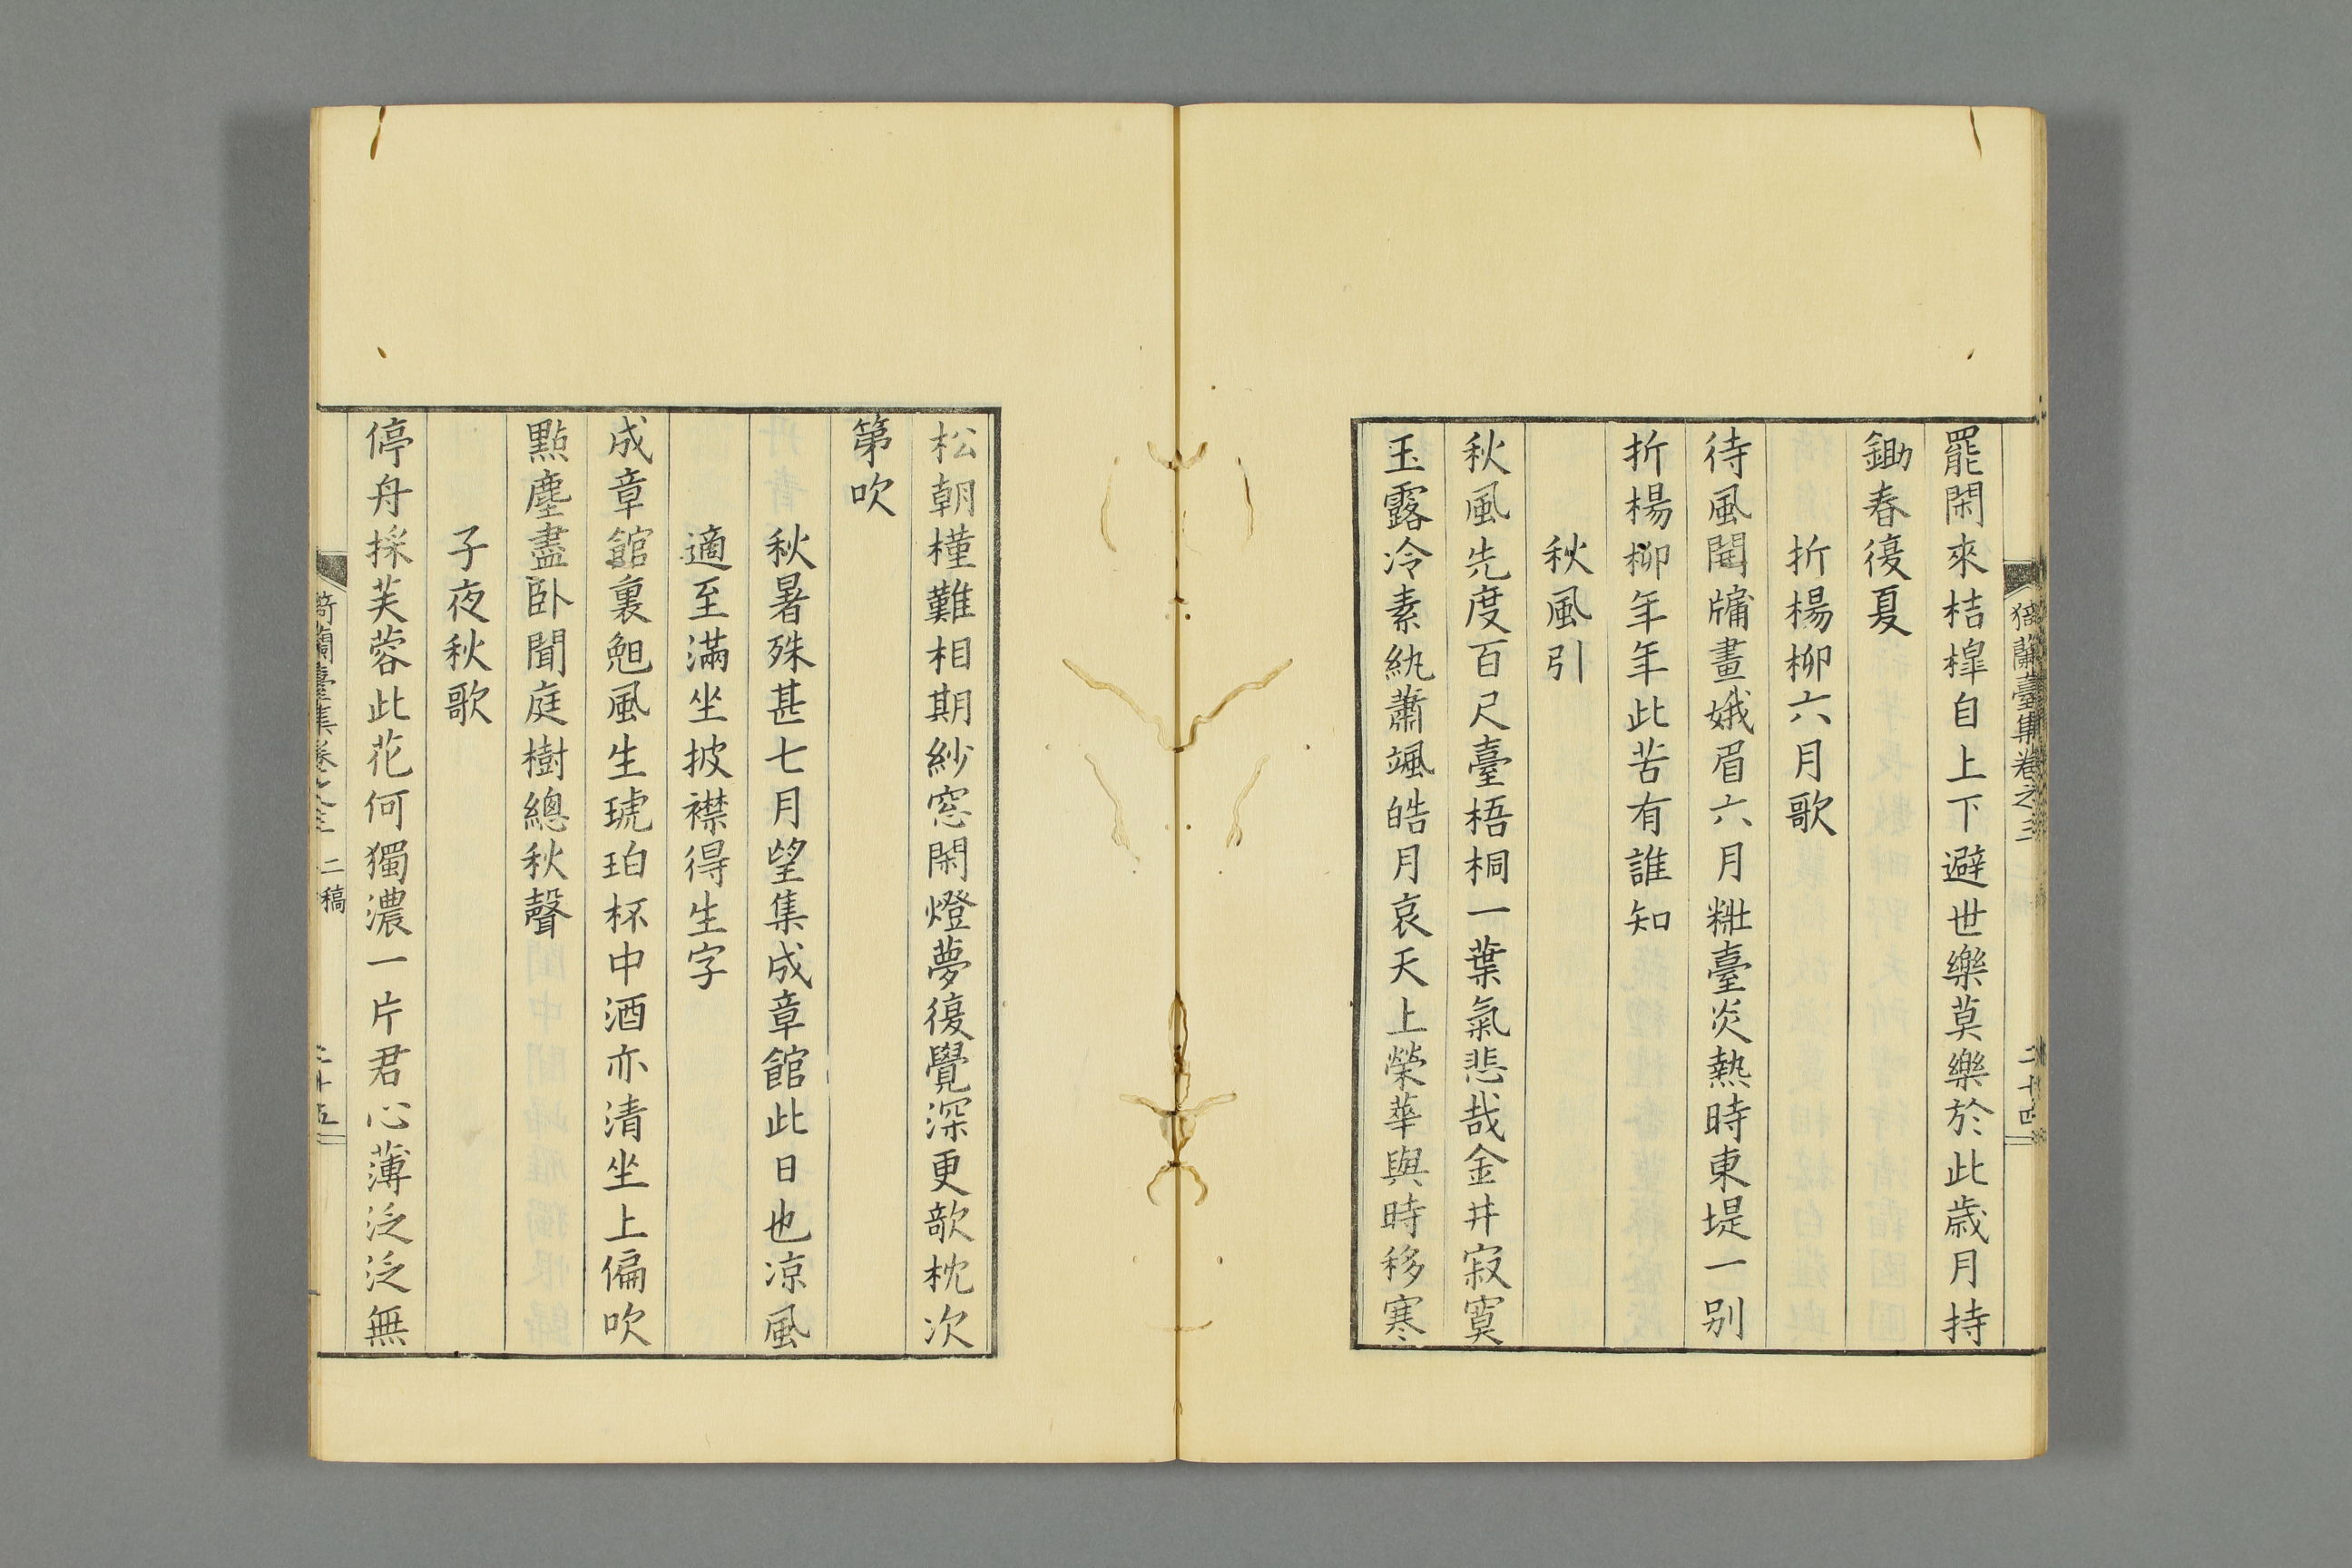 猗蘭臺集卷之三
二十四
罷閑來桔槹自上下避世樂莫樂於此歳月持
鋤春復夏
折楊柳六月歌
待風開牗畫娥眉六月粧臺炎熱時東堤一别
折楊柳年年此苦有誰知
秋風引
秋風先度百尺臺梧桐一葉氣悲哉金井寂寞
玉露冷素紈蕭颯皓月哀天上榮華與時移寒
松朝槿難相期紗窓閑燈夢復覺深更欹枕次
第吹
秋暑殊甚七月望集成章館此日也凉風
適至滿坐披襟得生字
成章館裏風生琥珀杯中酒亦清坐上偏吹
點塵盡卧聞庭樹總秋聲
子夜秋歌
停舟採芙蓉此花何獨濃一片君心薄泛泛無
猗蘭臺集卷之三 二稿
二十五